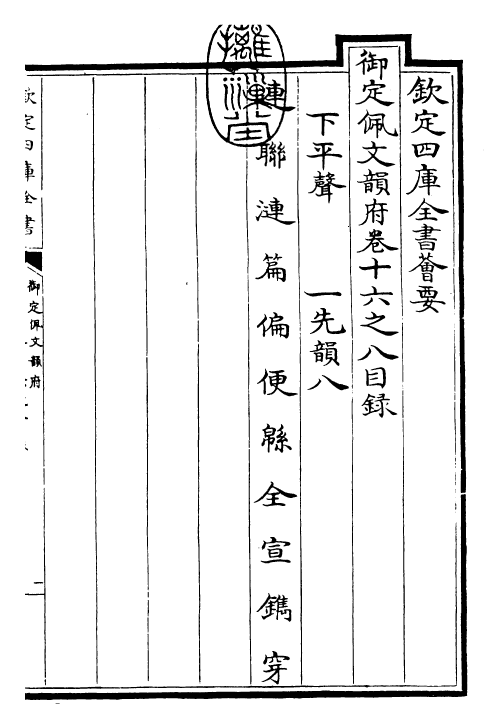 欽定四庫全書薈要
御定佩文韻府卷十六之八目録
下平聲　一先韻八
連聯漣篇偏便緜全宣鐫穿
欽定四庫全書
御定佩文韻府
二